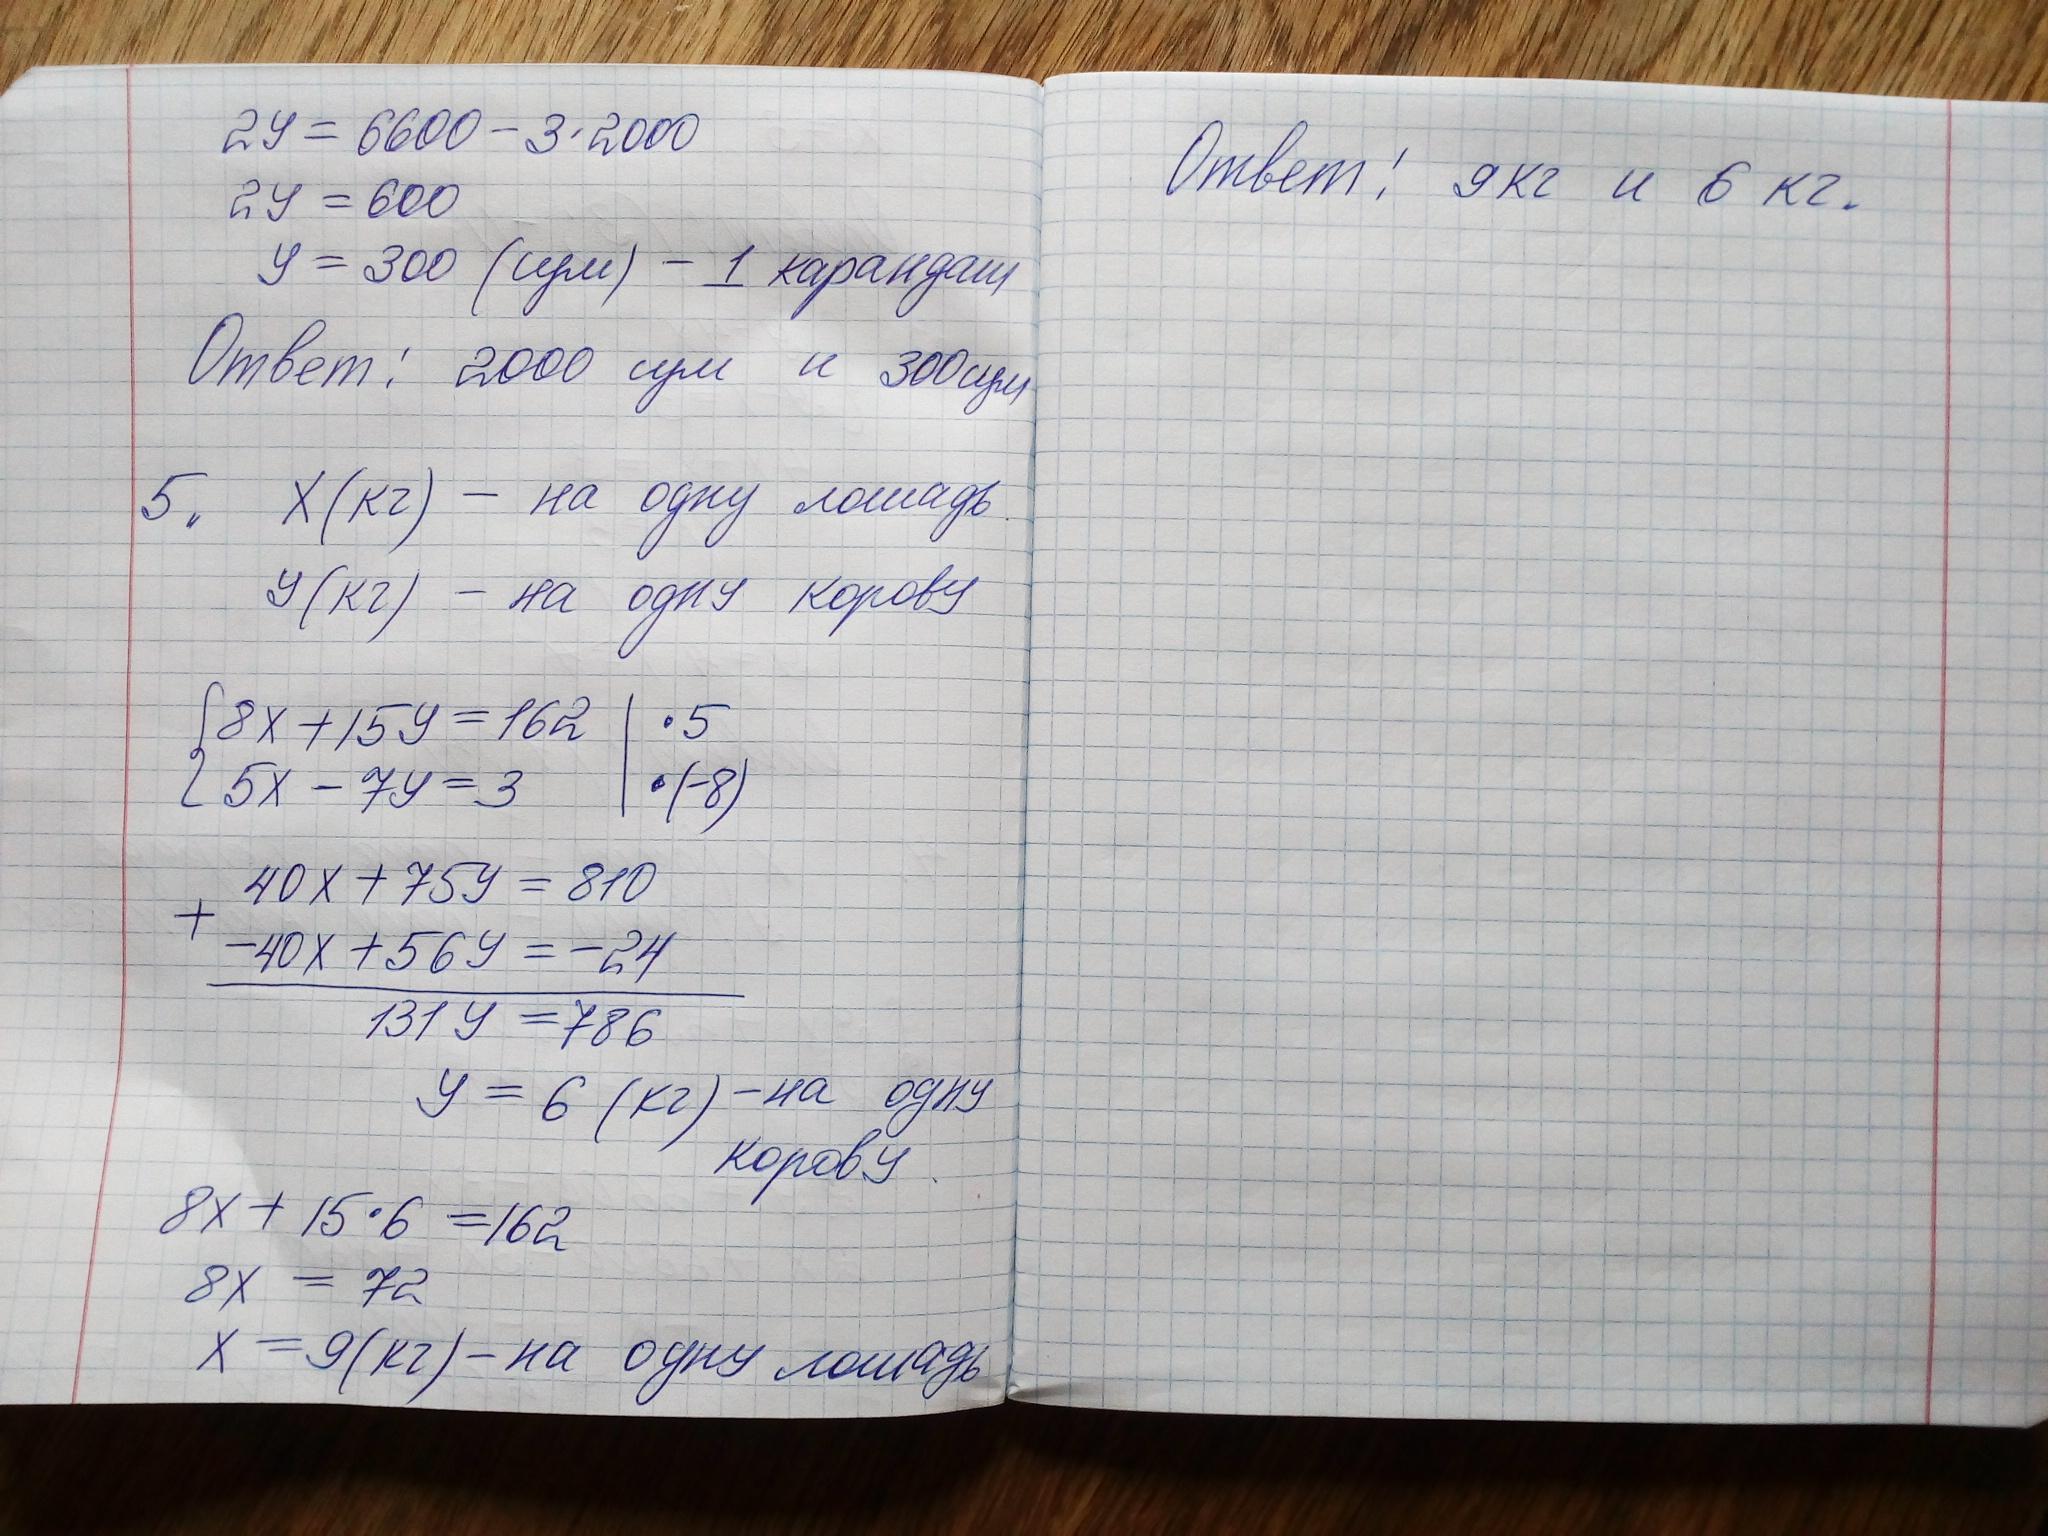 2y = 6600 - 3·2000
2y = 600
y = 300 (сум) - 1 карандаш
Ответ: 2000 сум и 300 сум
5. x(кг) - на одну лошадь
y(кг) - на одну корову
{8x + 15y = 162 | ·5
5x - 7y = 3 | ·(-8)
40x + 75y = 810
+
-40x + 56y = -24
131y = 786
y = 6 (кг) - на одну
корову.
8x + 15·6 = 162
8x = 72
x = 9(кг) - на одну лошадь
Ответ: 9кг и 6 кг.